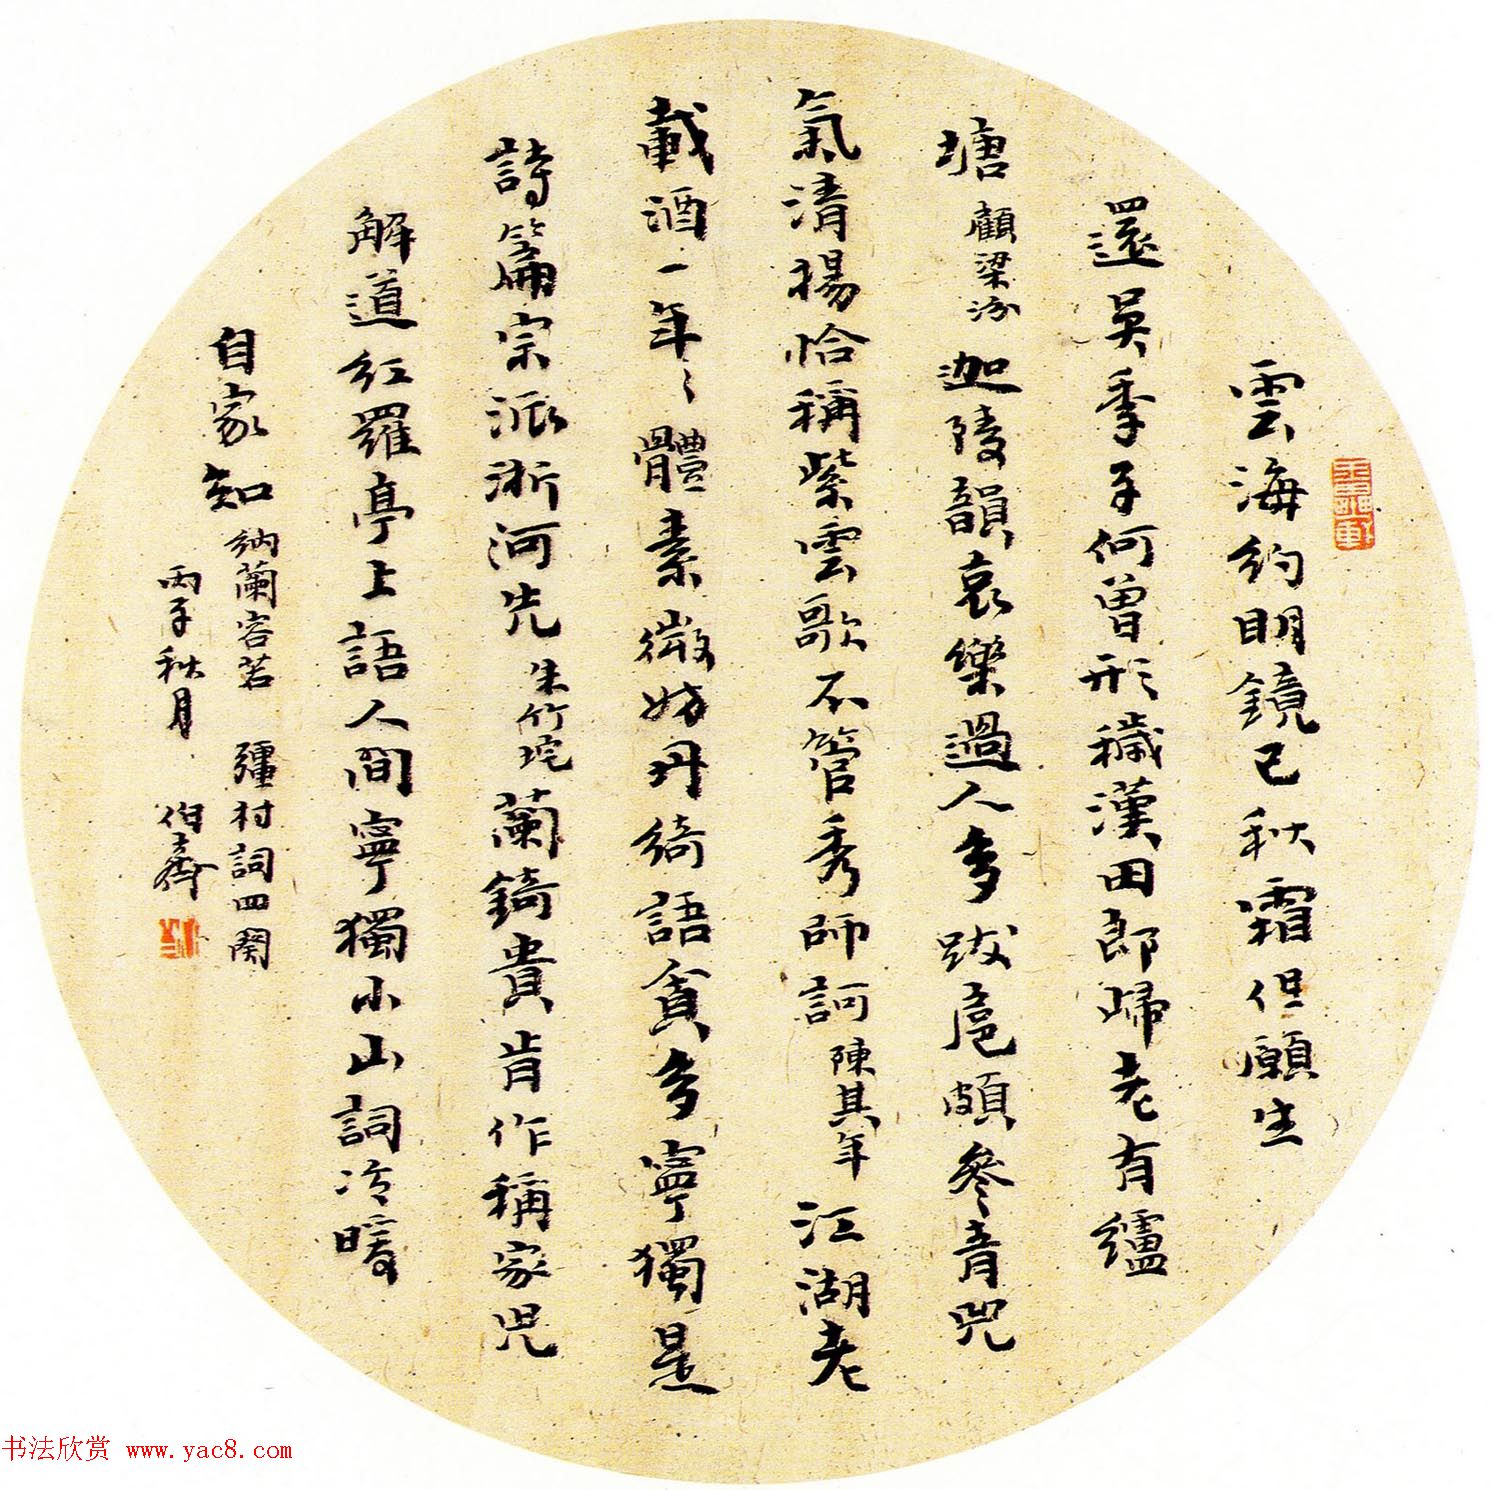 雲海約明鏡已秋霜但願生
還吳季子何曾形穢漢田郎歸老有纑
塘顧梁汾迦陵韻哀樂過人多跋扈頗參青兕
氣清揚恰稱紫雲歌不管秀師訶陳其年江湖老
載酒一年々體素微妨丹綺語貪多寧獨是
詩篇宗派浙河先朱竹垞蘭錡貴肯作稱家兒
解道紅羅亭上語人間寧獨小山詞冷暖
自家知納蘭容若 彊村詞四闋
丙子秋月 伯齋
书法欣赏 www.yac8.com